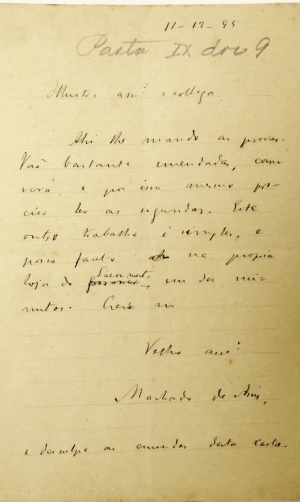 11-12-95
Pasta IX doc 9
Illustre am.º e collega
Ahi lhe mando as provas.
Vão bastante emendadas, como
verá, e por isso mesmo pre-
ciso ler as segundas. Este
outro trabalho é simples, e
posso fazel-o na propria
loja do Laemmert, em dez mi-
nutos. Creia no
Velho am.º
Machado de Assis,
e desculpe as emendas desta carta.